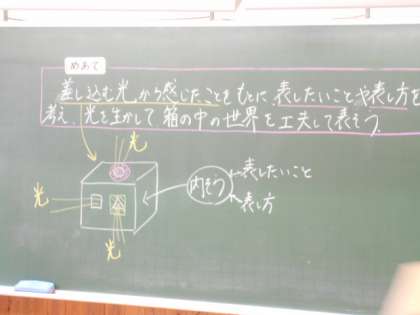 めあて
差し込む光から感じたことをもとに、表したいことや表し方を
考え、光を生かして箱の中の世界を工夫して表そう。
光
光
光
内そう
表したいこと
表し方